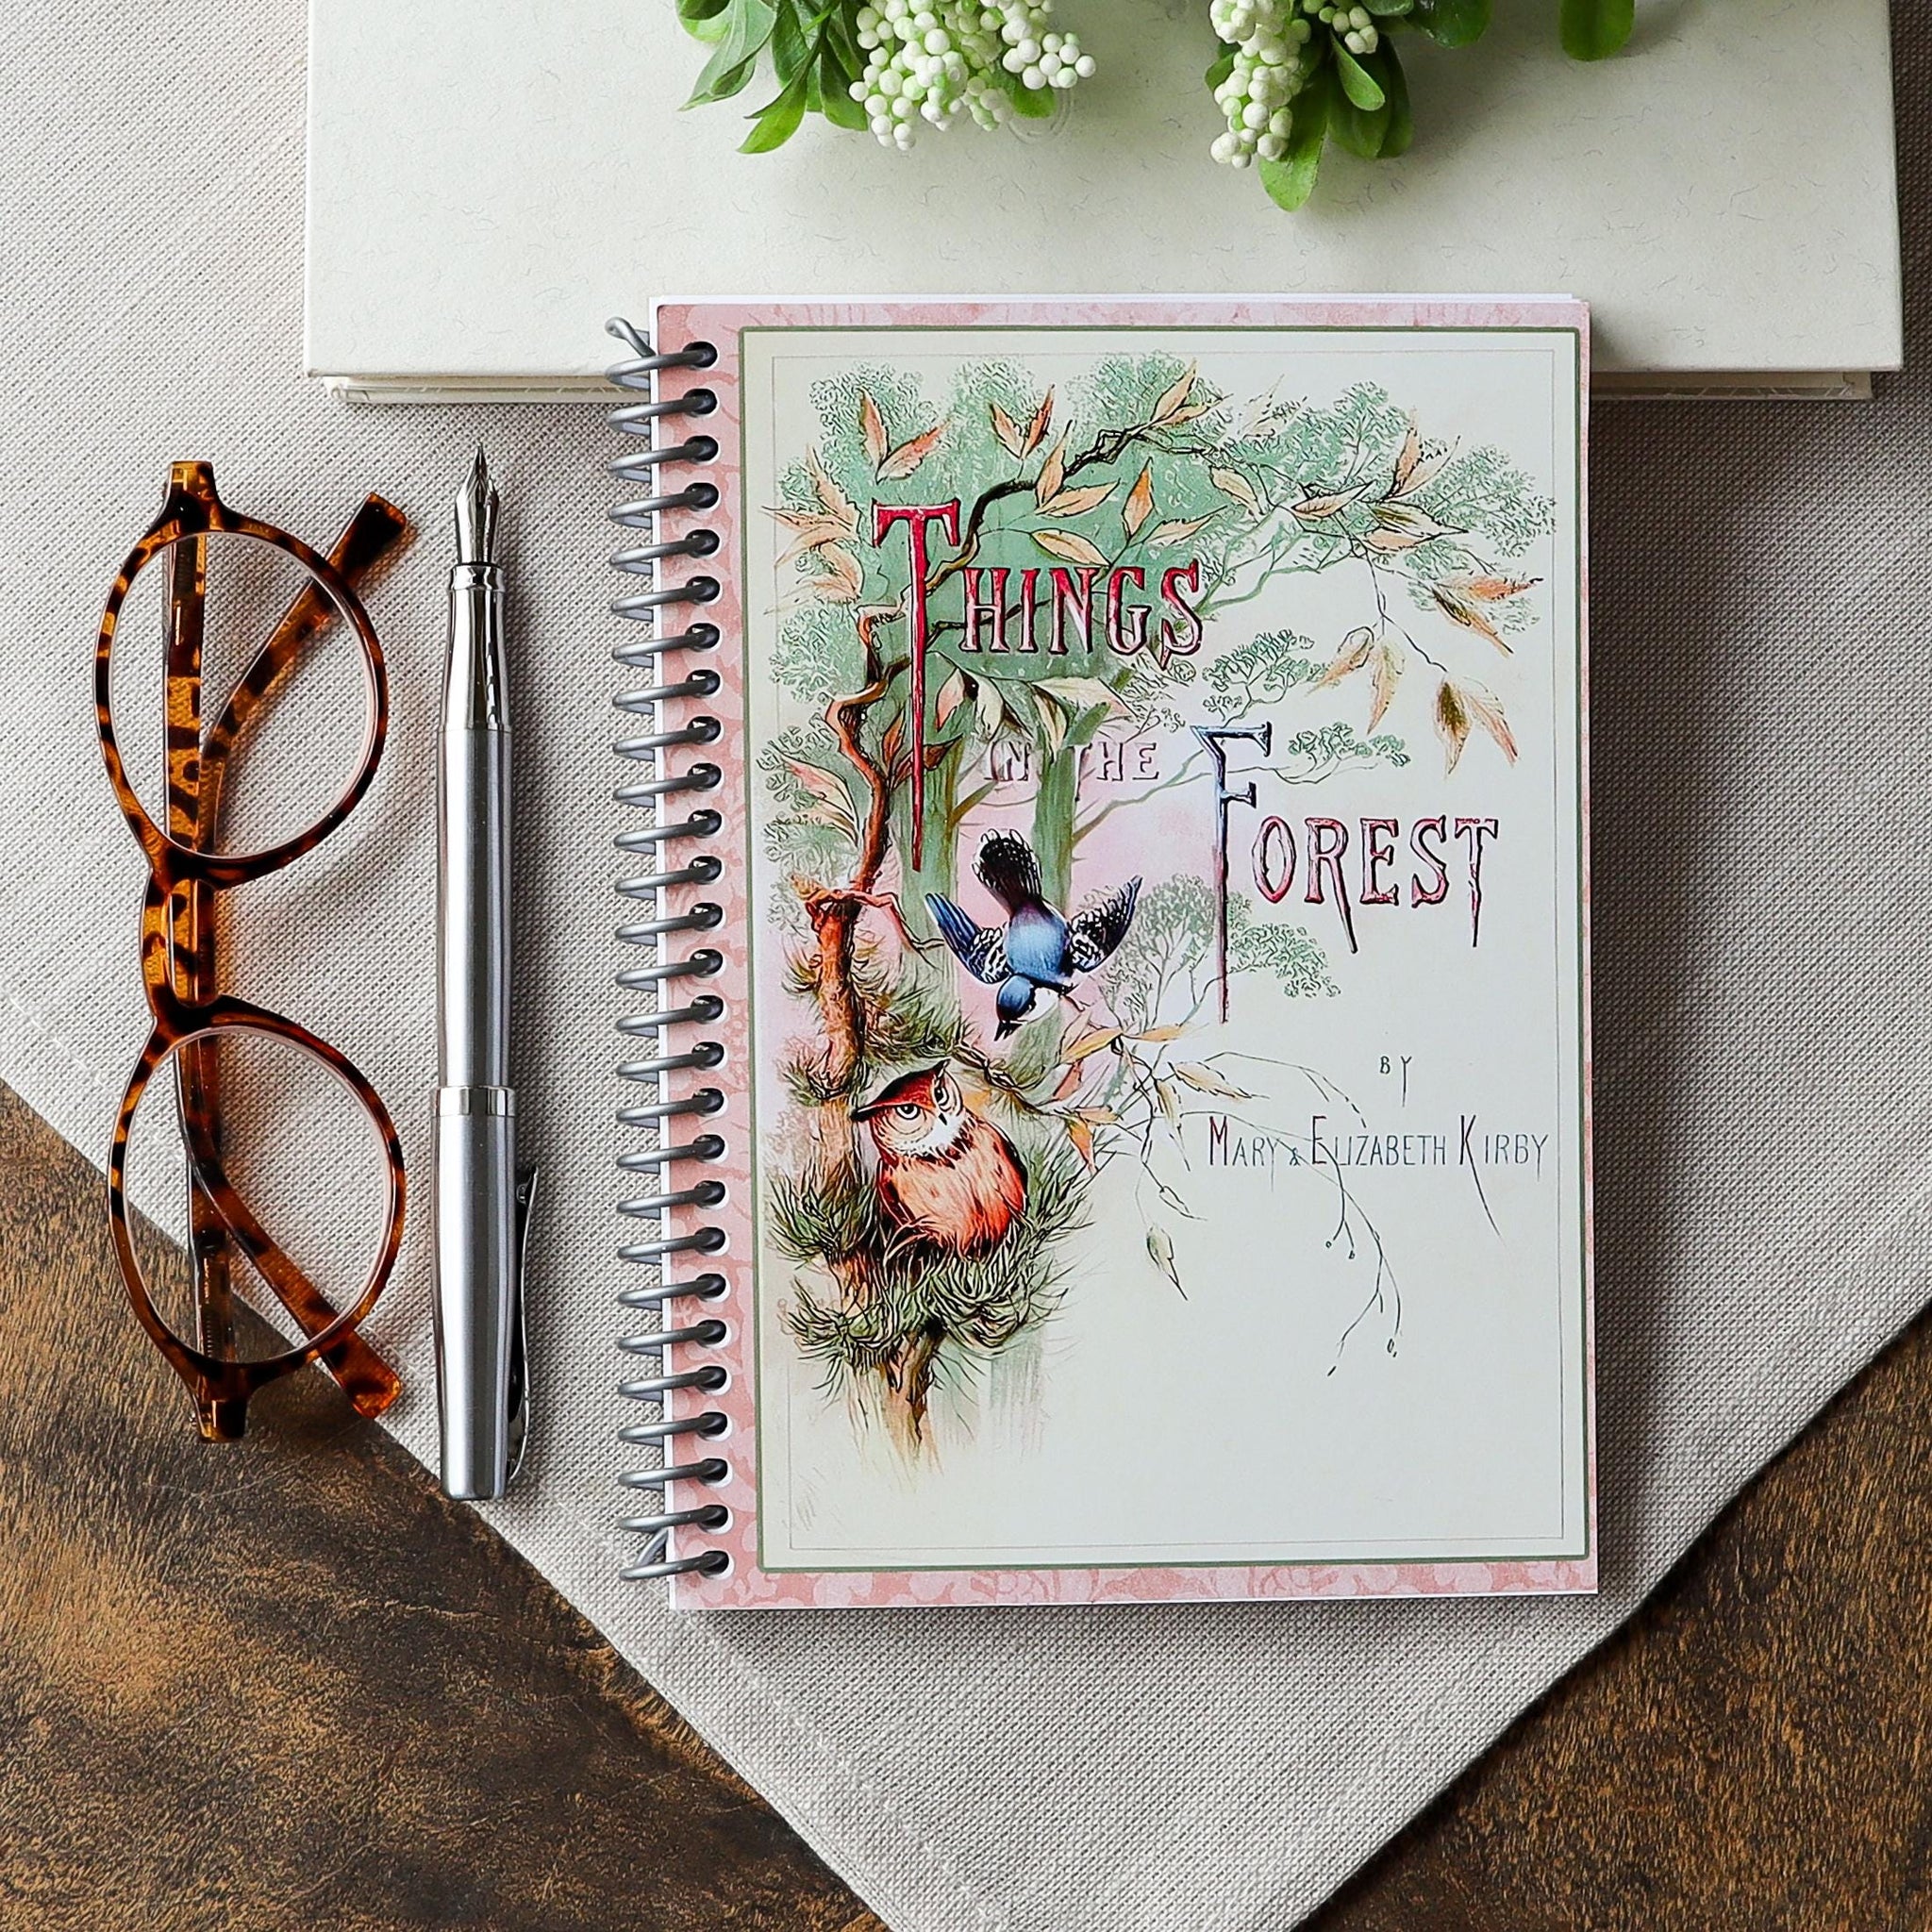 THINGS
IN THE
FOREST
BY
MARY & ELIZABETH KIRBY